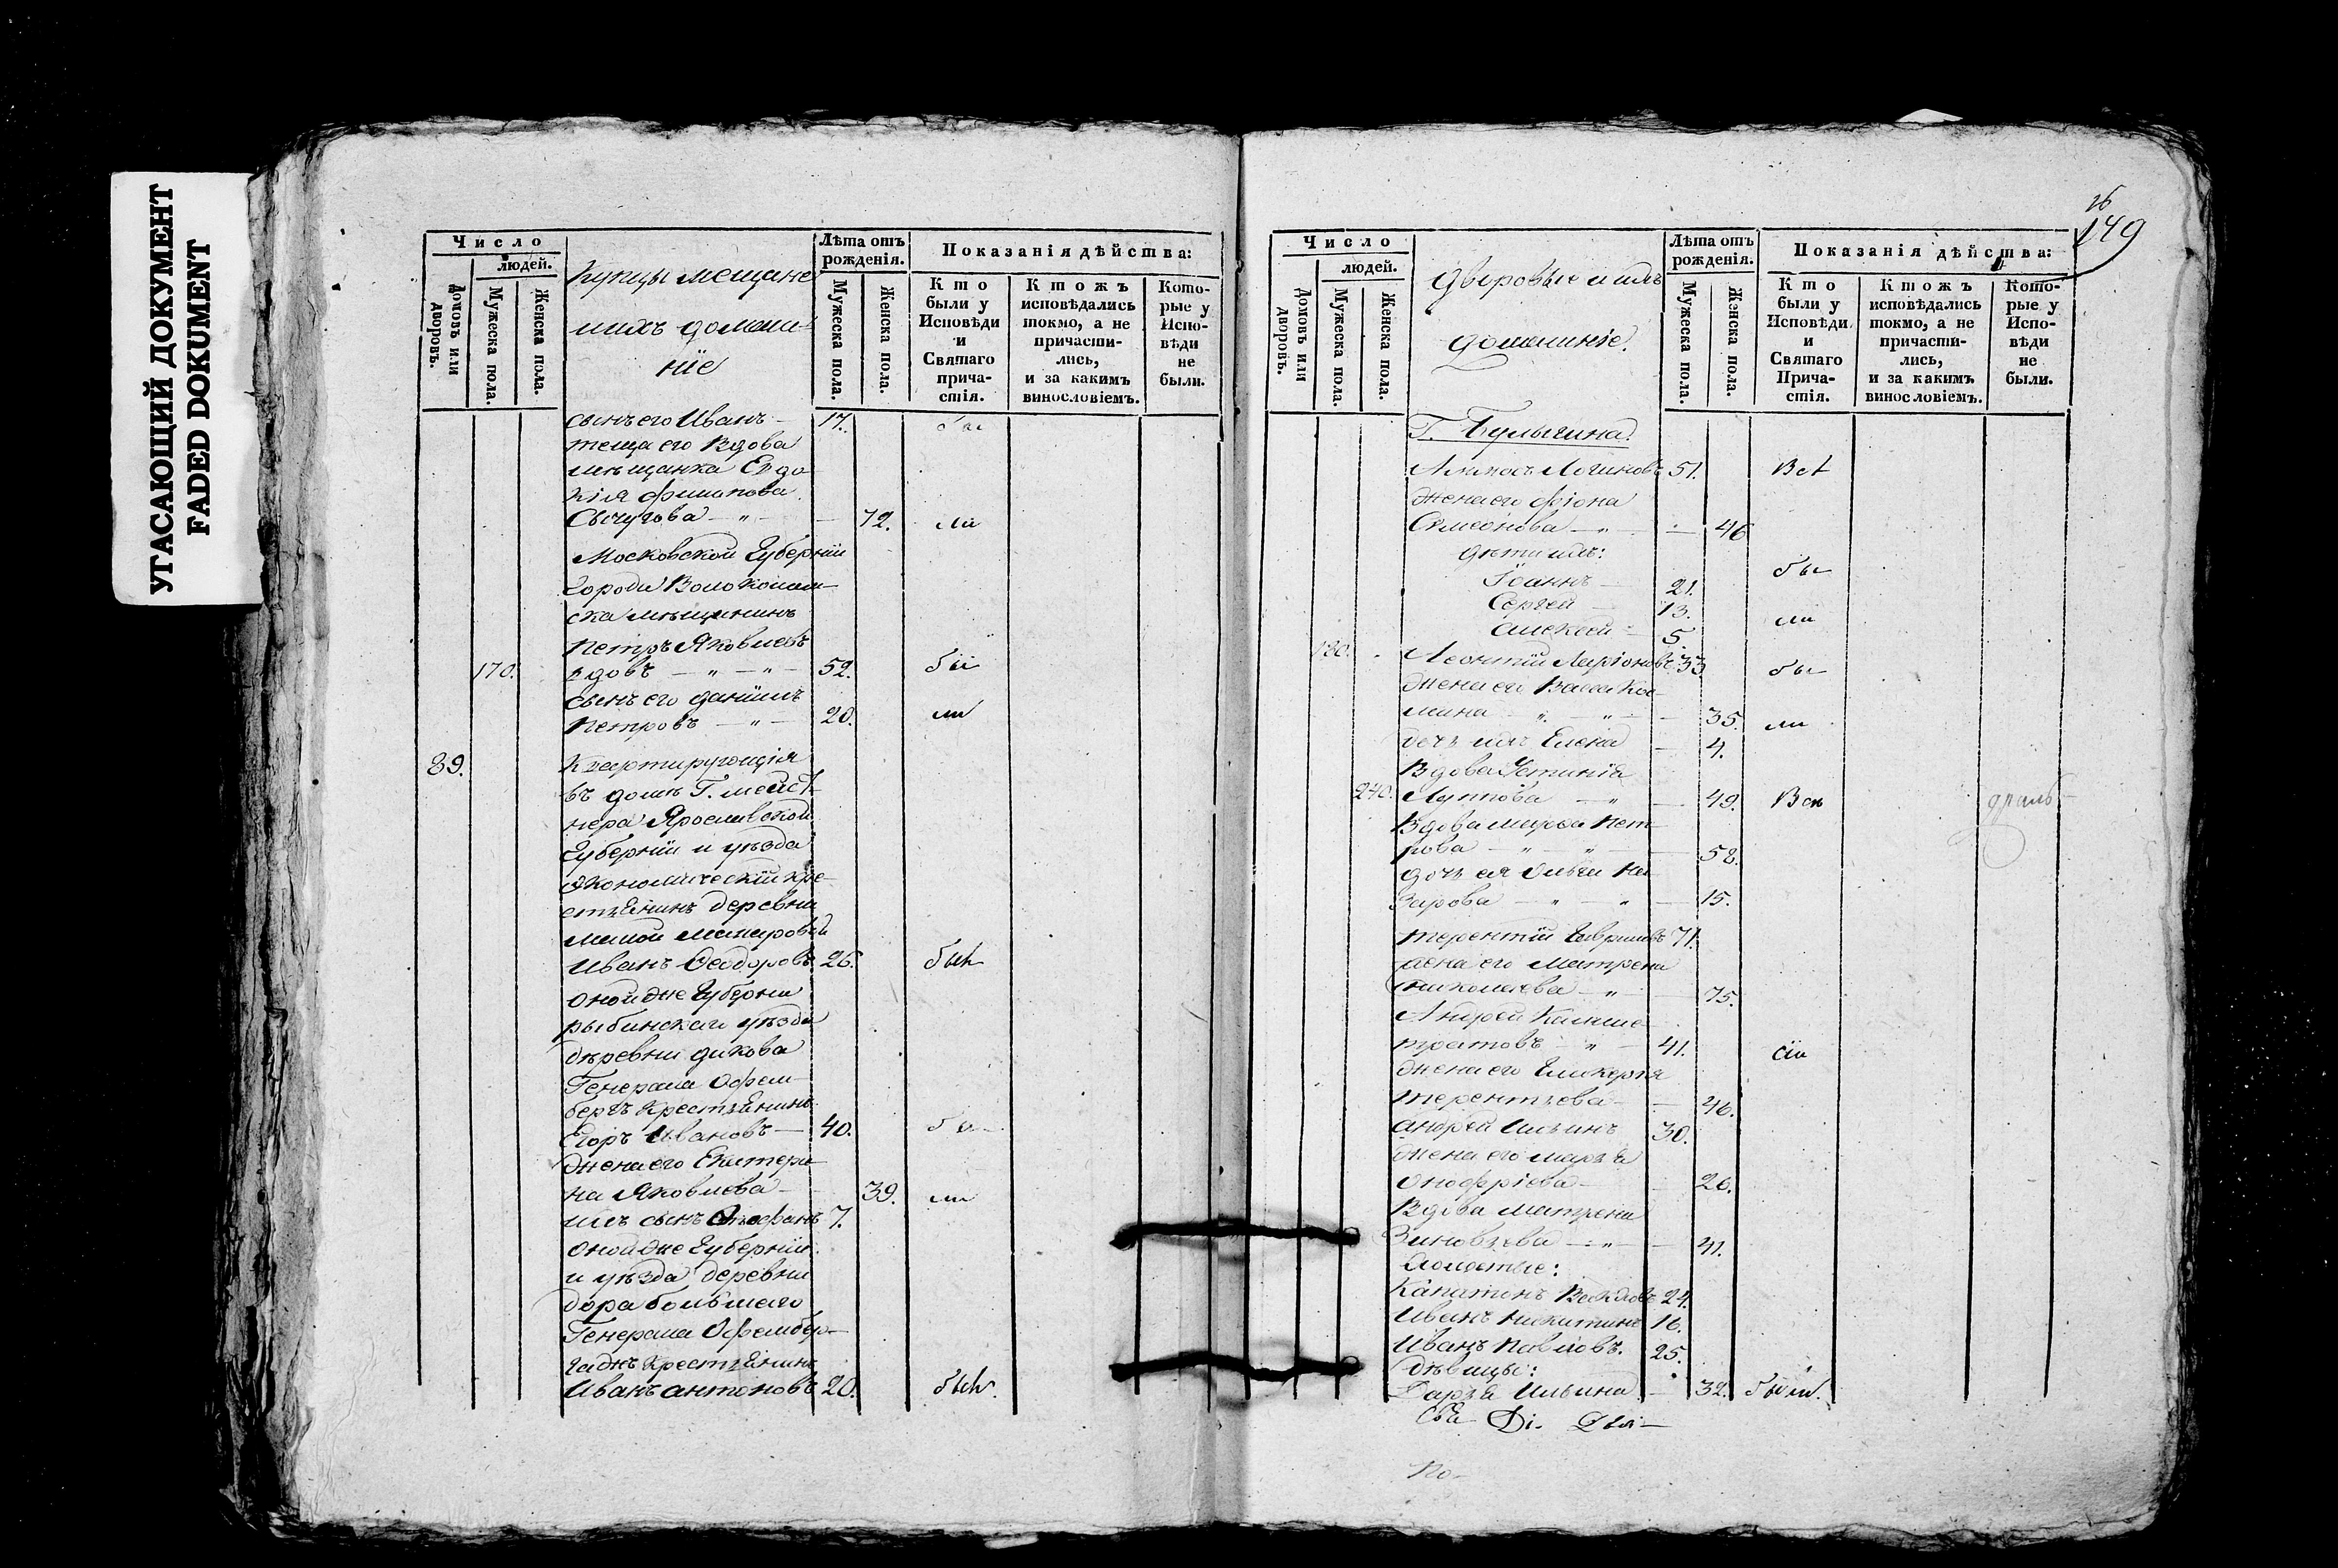 УГАСАЮЩИЙ ДОКУМЕНТ
FADED DOKUMENT
Число
людей.
Домовъ или дворовъ.
Мужеска пола.
Женска пола.
Купцы мещане
ихъ домаш-
ніе
Лѣта отъ рожденія.
Мужеска пола.
Женска пола.
Показанія дѣйства:
Кто были у Исповѣди и Святаго причастія.
Ктожъ исповѣдались токмо, а не причастились, и за какимъ винословіемъ.
Которые у Исповѣди не были.
сынъ его Иванъ – 17.
теща его Вдова
мѣщанка Евдо
кія Филипова
Сычугова – „ – 72.
Московской Губерніи
города Волоколам–
ска мѣщанинъ
Петръ Яковлевъ
170. вдовъ – „ – „ – 52. бы
сынъ его Даніилъ
Петровъ – „ – 20. ли
89. Квартирующія
въ домѣ Г.
нера Ярославской
Губерніи и уѣзда
экономическій кре–
стьянинъ деревни
малой
Иванъ Ѳеодоровъ 26. былъ
оной же Губерніи
рыбинскаго уѣзда
деревни дикова
Генерала
бергъ крестьянинъ
Егоръ Ивановъ – 40. бы
жена его Екатери–
на Яковлева – 39. ли
ихъ сынъ 7.
оной же Губерніи
и уѣзда деревни
Генерала
крестьянинъ
Иванъ антоновъ 20. былъ.
149
Число
людей.
Домовъ или дворовъ.
Мужеска пола.
Женска пола.
Дворовые и ихъ
домашніе.
Лѣта отъ рожденія.
Мужеска пола.
Женска пола.
Показанія дѣйства:
Кто были у Исповѣди и Святаго Причастія.
Ктожъ исповѣдались токмо, а не причастились, и за какимъ винословіемъ.
Которые у Исповѣди не были.
Г. Булыгина.
Логиновъ 51. Всѣ
жена его
Симеонова – „ – 46
дѣти ихъ: бы
Іоаннъ – 21.
Сергей – 13. ли
Алексей – 5.
180. Леонтій Ларіоновъ 33 бы
жена его Васса Коз
мина – „ – „ – 35. ли
дочь ихъ Елена – 4.
Вдова Устинія
240. Луппова – „ – 49. Всѣ
Вдова Марѳа Пет–
рова – „ – „ – 58.
дочь ея Ольга На
зарова – „ – „ – 15.
Терентій Гавриловъ 71.
жена его Матрена
Николаева – „ – 75.
Андрей Калис–
тратовъ – „ – 41. сіи
жена его Гликерія
Терентьева – 46.
Андрей Ильинъ 30.
жена его Марья
Онофріева – 26.
Вдова Матрена
Зиновьева – „ – 41.
Холостые:
Капитонъ 24.
Иванъ Никитинъ 16.
Иванъ Павловъ. 25.
дѣвицы:
Дарья Ильина – 32. были.